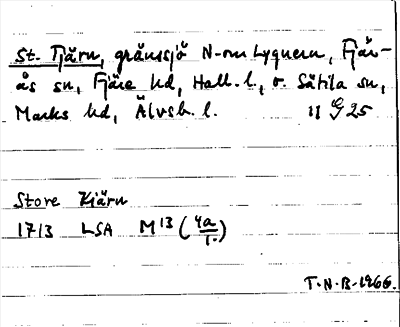 St. Tjärn, gränssjö N-om Lygnern, Fjär-
ås sn, Fjäre hd, Hall. l., o. Sätila sn,
Marks hd, Älvsb. l. 11 G 25
Store Kiärn
1713 LSA M 13 (4a/1.)
T.N.B-1966.